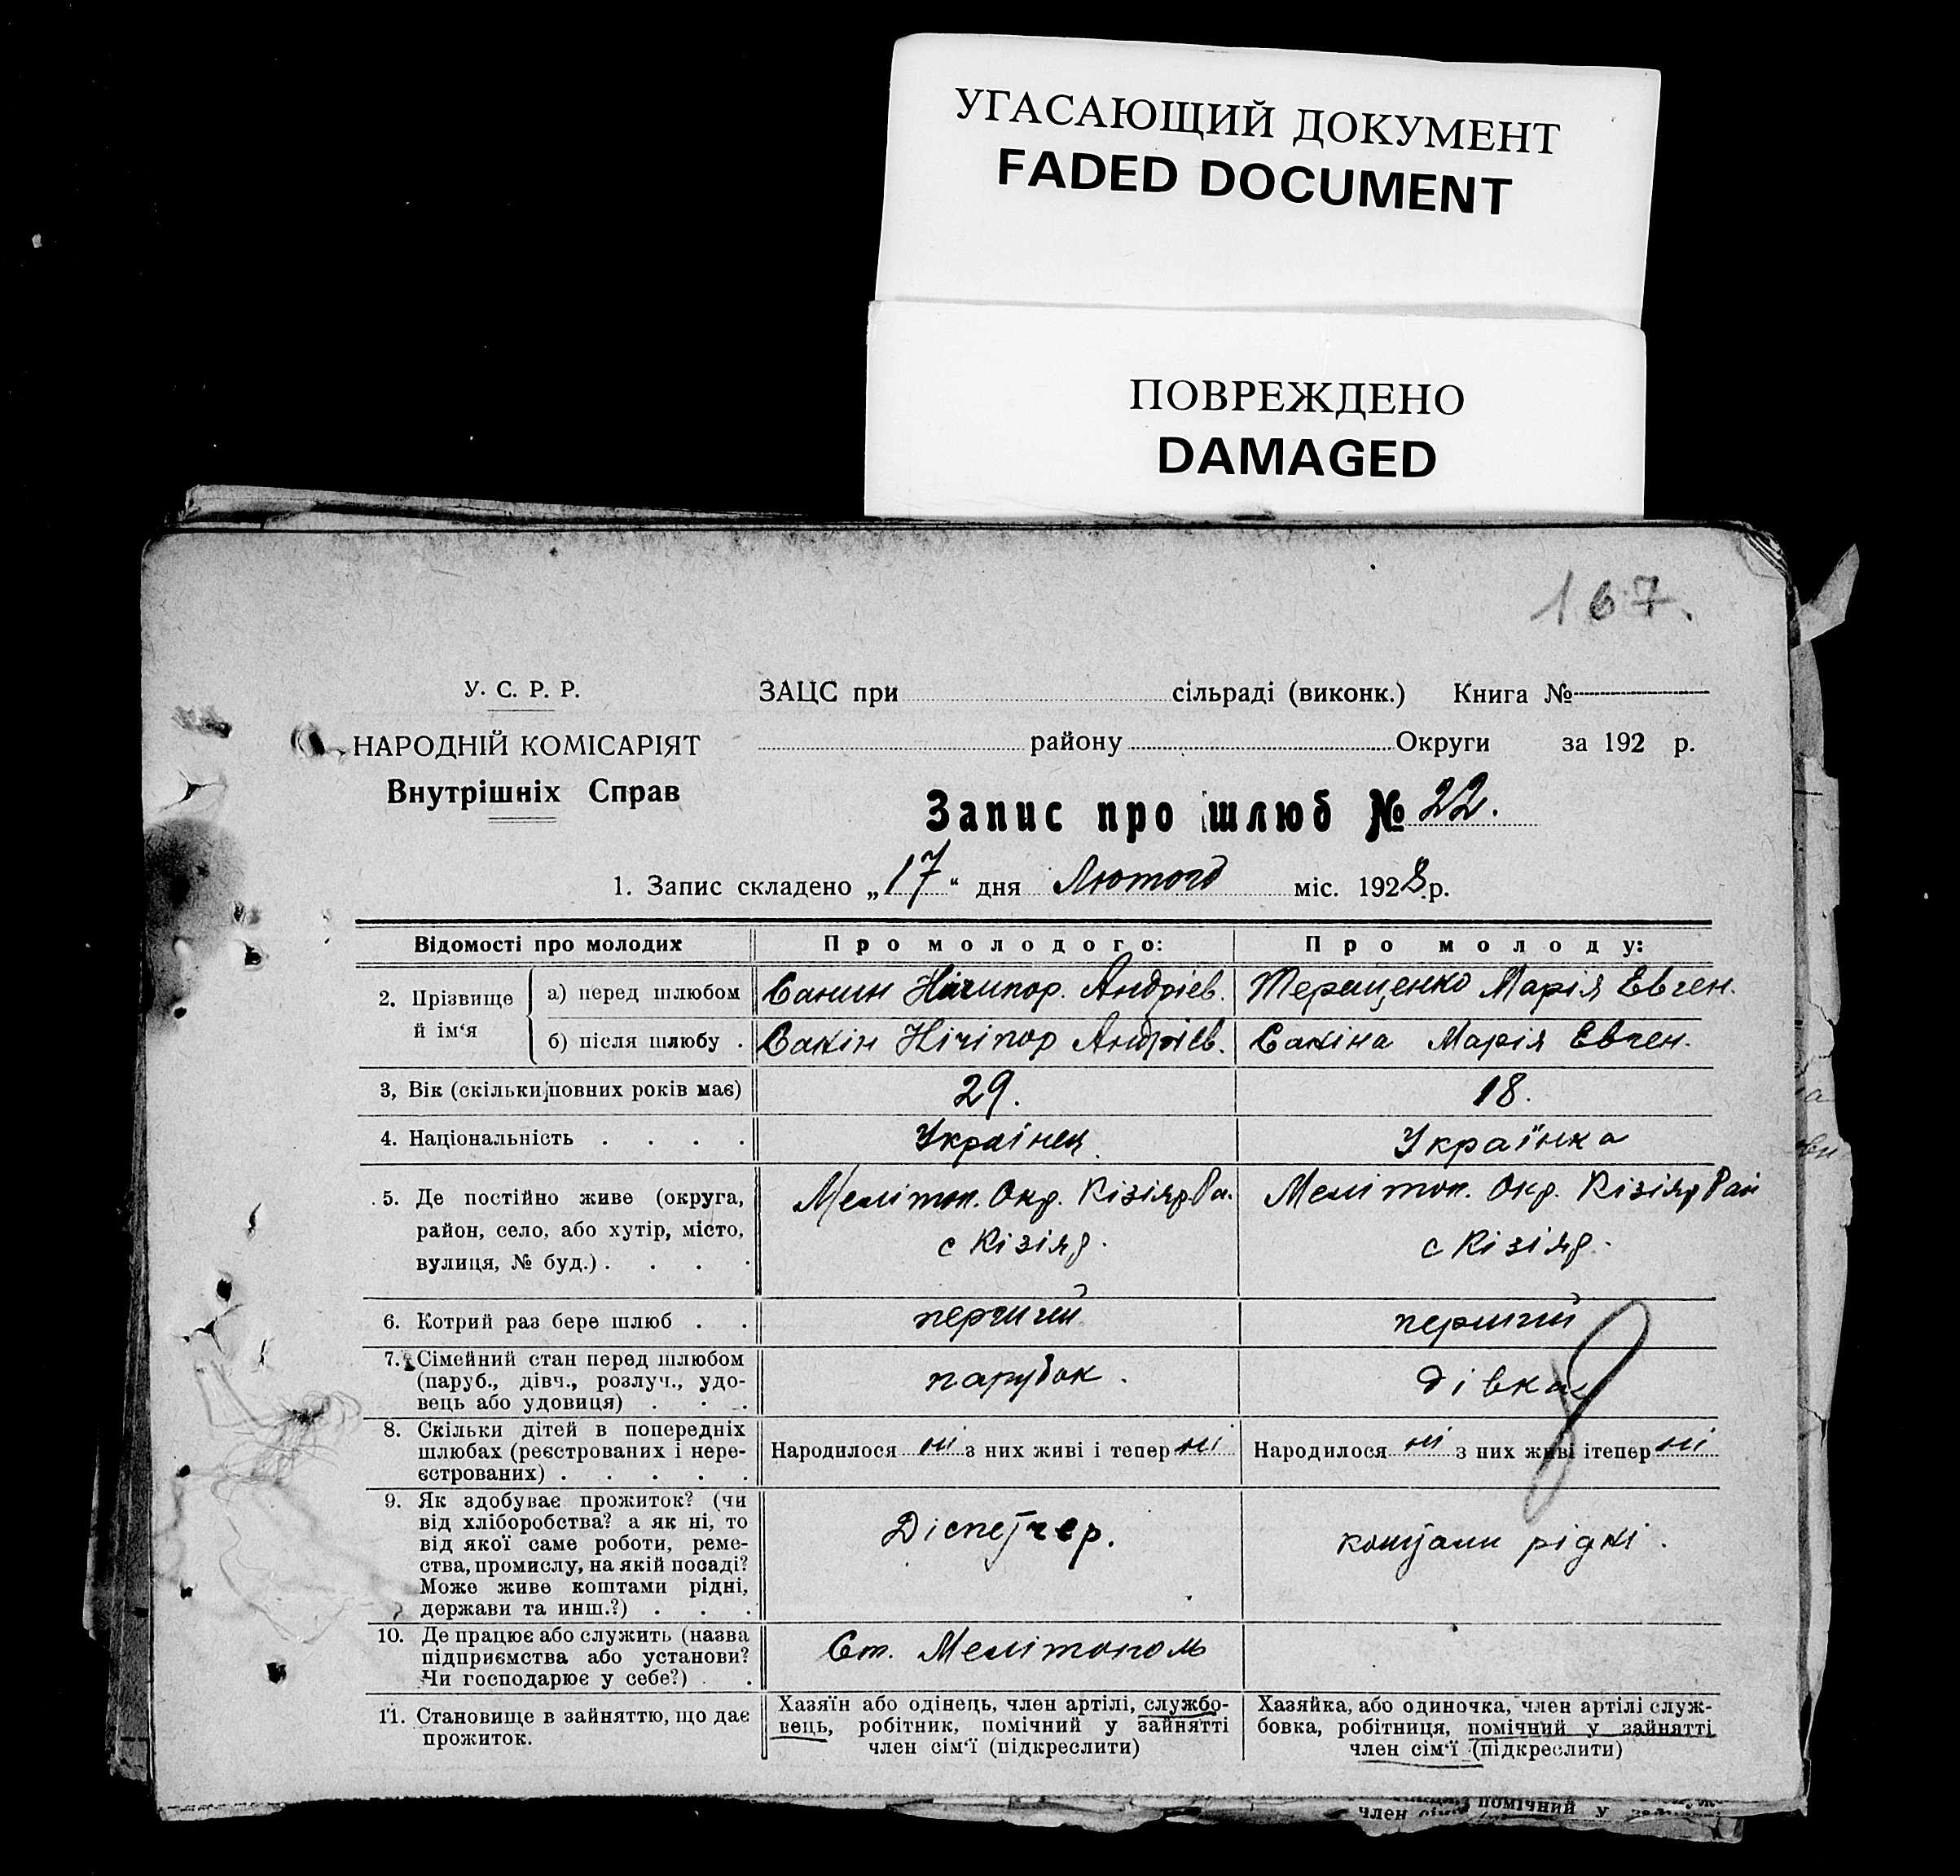 УГАСАЮЩИЙ ДОКУМЕНТ
FADED DOCUMENT
ПОВРЕЖДЕНО
DAMAGED
167.
У. С. Р. Р.
НАРОДНІЙ КОМІСАРІЯТ
Внутрішніх Справ
ЗАЦС при сільраді (виконк.) Книга №
району Округи за 192 р.
Запис про шлюб № 22.
1. Запис складено „17“ дня Лютого міс. 1928 р.
Відомості про молодих
Про молодого:
Про молоду:
2. Прізвище й ім‘я
а) перед шлюбом
Санин Нічипор. Андрієв.
Терещенко Марія Евген.
б) після шлюбу .
Сакін Нічіпор Андрієв.
Сакіна Марія Евген.
3, Вік (скільки повних років має)
29.
18.
4. Національність . . . .
Українец
Українка
5. Де постійно живе (округа,
район, село, або хутір, місто,
вулиця, № буд.) . . . .
Мелітоп. Окр. Кізіяр Ра.
с Кізіяр.
Мелітоп. Окр. Кізіяр Рай
с Кізіяр.
6. Котрий раз бере шлюб . .
перший
перший
7. Сімейний стан перед шлюбом
(паруб., дівч., розлуч., удо-
вець або удовиця) . . .
парубок.
дівка
8. Скільки дітей в попередніх
шлюбах (реєстрованих і нере-
єстрованих) . . . . .
Народилося ні з них живі і тепер ні
Народилося ні з них живі ітепер ні
9. Як здобуває прожиток? (чи
від хліборобства? а як ні, то
від якої саме роботи, реме-
ства, промислу, на якій посаді?
Може живе коштами рідні,
держави та инш.?) . . .
Діспетчер.
коштами рідні.
10. Де працює або служить (назва
підприємства або установи?
Чи господарює у себе?) . .
Ст. Мелітополь
11. Становище в зайняттю, що дає
прожиток.
Хазяїн або одінець, член артілі, службо-
вець, робітник, помічний у зайнятті
член сім‘ї (підкреслити)
Хазяйка, або одиночка, член артілі служ-
бовка, робітниця, помічний у зайнятті
член сім‘ї (підкреслити)
помічний у
член